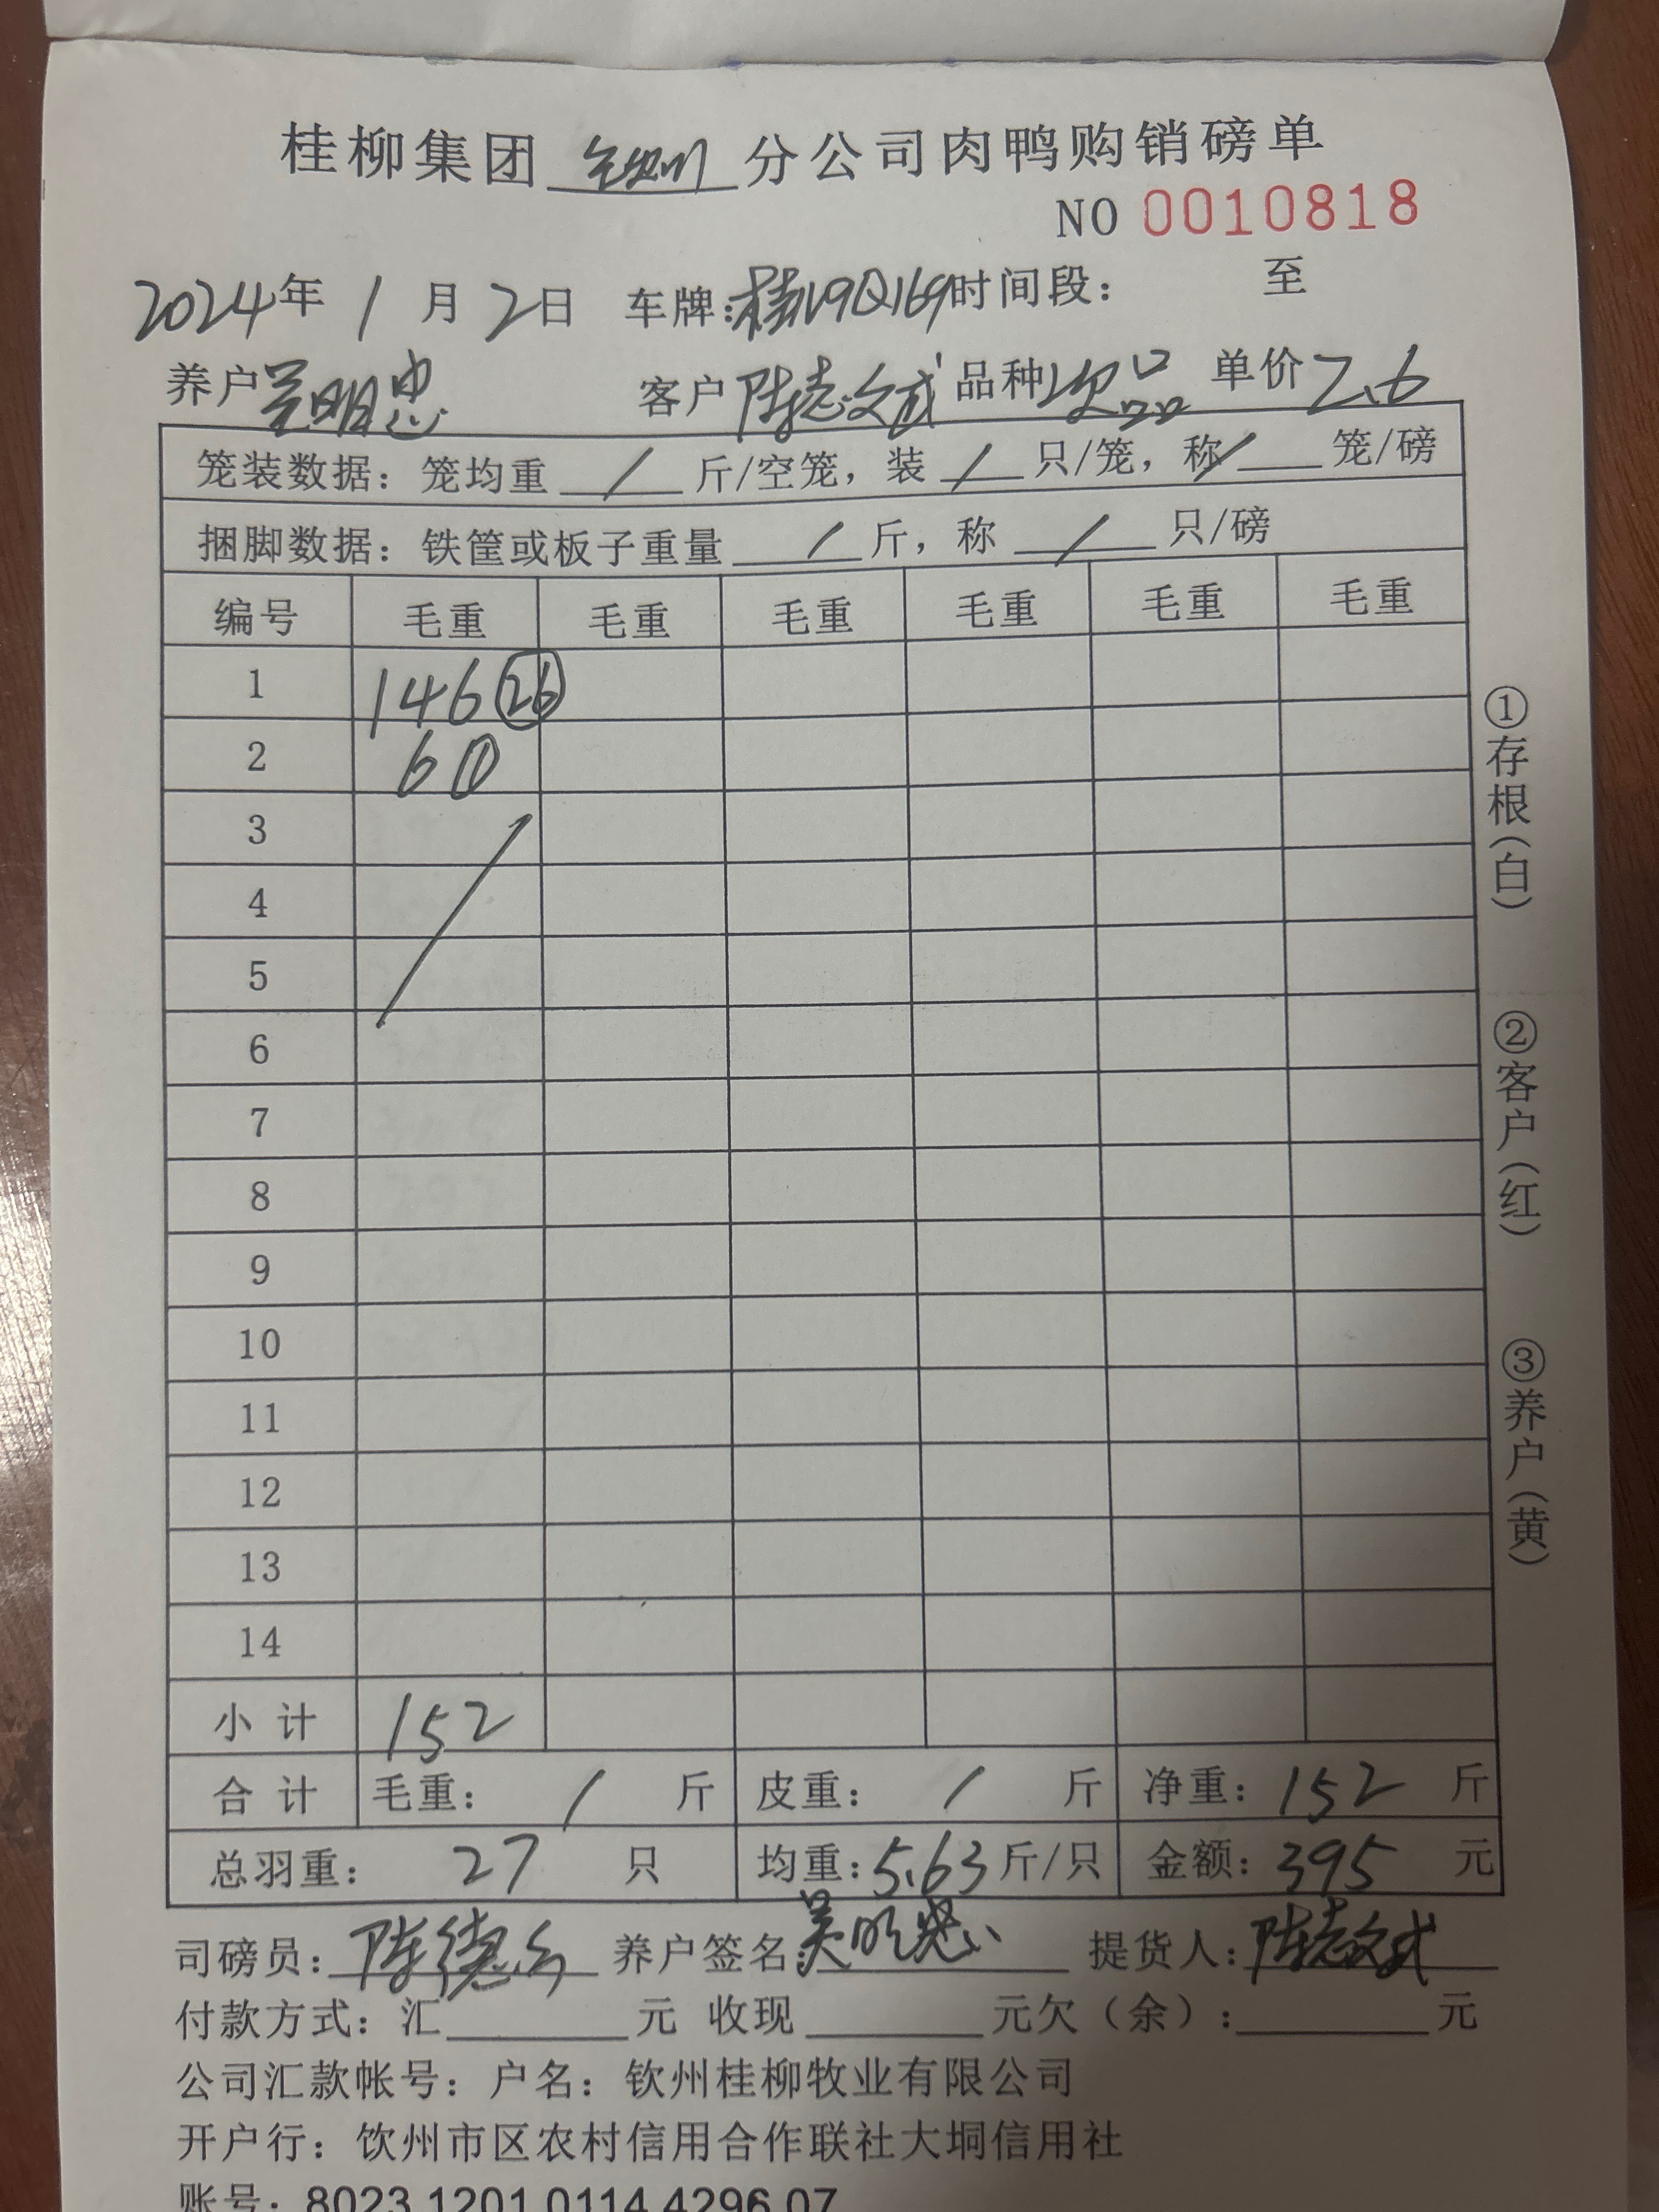 桂柳集团 钦州 分公司肉鸭购销磅单
NO 0010818
2024年 1月 2日 车牌:桂N9Q169时间段: 至
养户吴明忠 客户 陈志文武 品种次品 单价2.6
笼装数据: 笼均重 / 斤/空笼, 装 / 只/笼, 称 / 笼/磅
捆脚数据: 铁筐或板子重量 / 斤, 称 / 只/磅
编号 毛重 毛重 毛重 毛重 毛重 毛重
1 146 26
2 6 ①
3
4
5
6
7
8
9
10
11
12
13
14
小计 152
合计 毛重: / 斤 皮重: / 斤 净重: 152 斤
总羽重: 27 只 均重:5.63斤/只 金额: 395 元
司磅员: 陈德 养户签名:吴明忠 提货人:陈志文武
付款方式: 汇 元 收现 元欠(余): 元
公司汇款帐号: 户名: 钦州桂柳牧业有限公司
开户行: 钦州市区农村信用合作联社大垌信用社
账号: 8023 1201 0114 4296 07
①存根(白)
②客户(红)
③养户(黄)